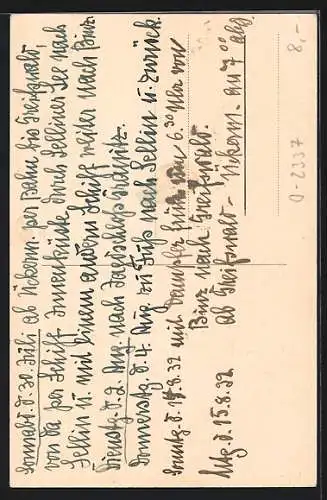 Sonnabd. d. 30. Juli ab Ückerm. per Bahn bis Greifswald,
von da per Schiff Innenküste durch Selliner See nach
Sellin u. mit einem andern Schiff weiter nach Binz.
Dienstg. d. 2. Aug. nach Jagdschloß Granitz.
Donnerstg. d. 4. Aug. zu Fuß nach Sellin u. zurück.
Sonntg. d. 14.8.32 mit Dampfer früh um 6.30 Uhr von
Binz nach Greifswald.
ab Greifswald - Ückerm. an 7 00 abd.
Mtg. d. 15.8.32
8,-
0-2337